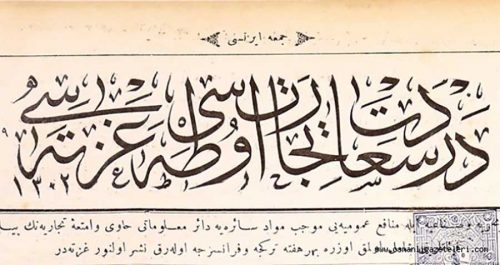 جمعه ایرتسی
درسعادت تجارت اوطه سی غزته سی
١٣٠٢
ایله منافع عمومیه یی موجب مواد سائره یه دائر معلوماتی حاوی و امتعهٔ تجاریه نك
اولمق اوزره بهر هفته ترکجه و فرانسزجه اوله رق نشر اولنور غزته در
www.osmanligazeteleri.com